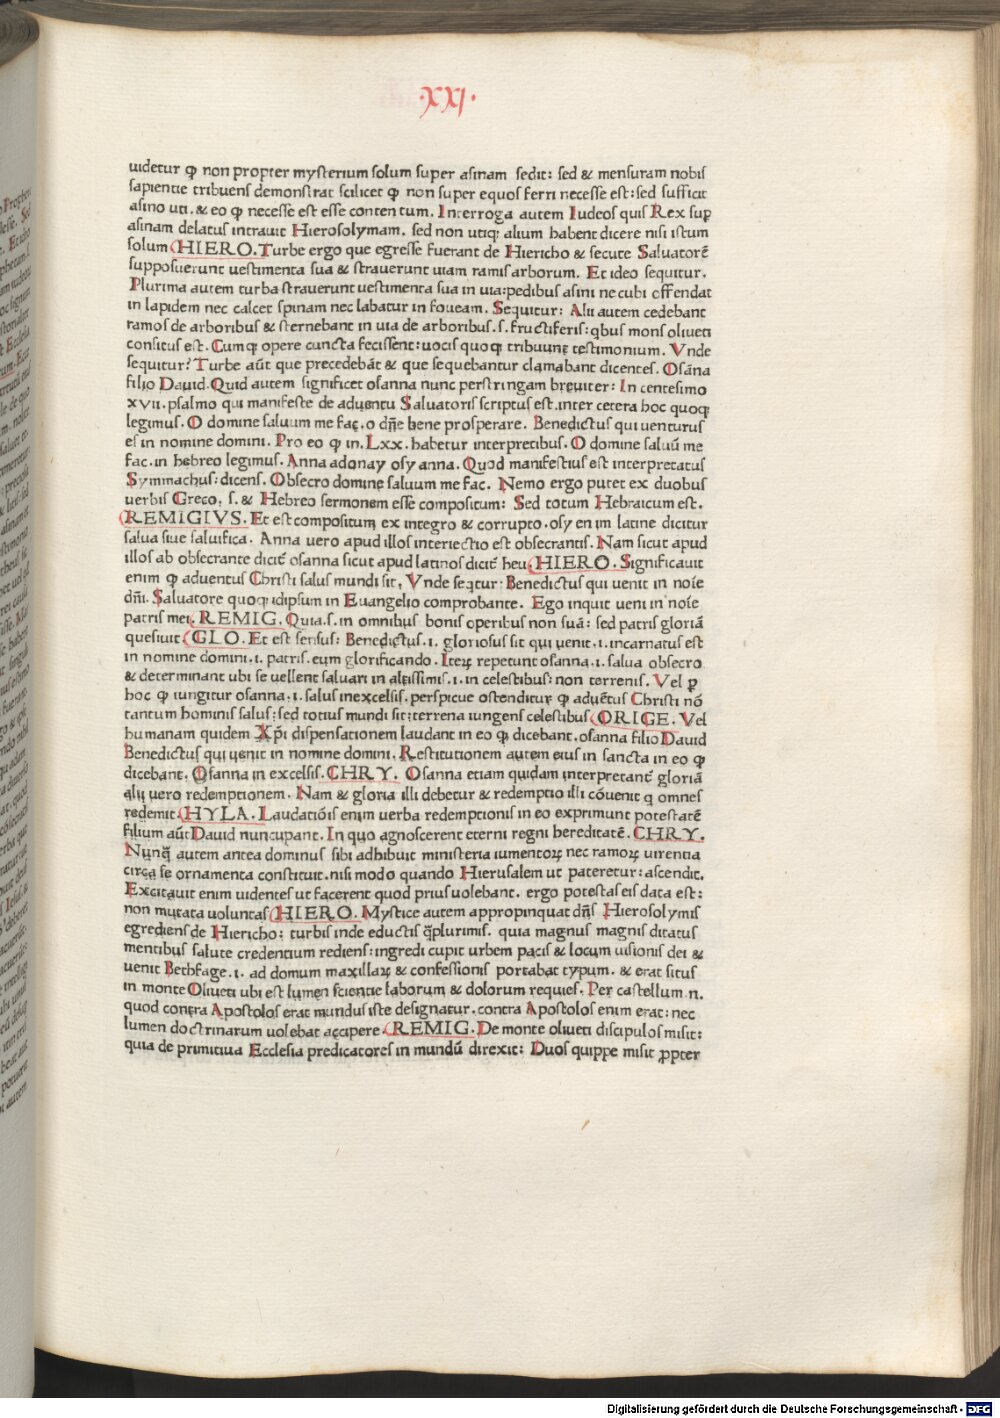 ·XXI·
uidetur ꝙ non propter mysterium solum super asinam sedit: sed & mensuram nobis
sapientie tribuens demonstrat scilicet ꝙ non super equos ferri necesse est: sed sufficit
asino uti. & eo ꝙ necesse est esse contentum. Interroga autem Iudeos quis Rex suꝑ
asinam delatus intrauit Hierosolymam. sed non utiqꝫ alium habent dicere nisi istum
solum (HIERO. Turbe ergo que egresse fuerant de Hiericho & secute Saluatorē
supposuerunt uestimenta sua & strauerunt uiam ramis arborum. Et ideo sequitur.
Plurima autem turba strauerunt uestimenta sua in uia: pedibus asini necubi offendat
in lapidem nec calcet spinam nec labatur in foueam. Sequitur: Alii autem cedebant
ramos de arboribus & sternebant in uia de arboribus. s. fructiferis: qbus mons oliueti
consitus est. Cumqꝫ opere cuncta fecissent: uocis quoqꝫ tribuunt testimonium. Vnde
sequitur? Turbe aūt que precedebāt & que sequebantur clamabant dicentes. Osāna
filio Dauid. Quid autem significet osanna nunc perstringam breuiter: In centesimo
xvii. psalmo qui manifeste de aduentu Saluatoris scriptus est. inter cetera hoc quoqꝫ
legimus. O domine saluum me fac. o dn̄e bene prosperare. Benedictus qui uenturus
es in nomine domini. Pro eo ꝙ in. Lxx. habetur interpretibus. O domine saluū me
fac. in hebreo legimus. Anna adonay osy anna. Quod manifestius est interpretatus
Symmachus: dicens. Obsecro domine saluum me fac. Nemo ergo putet ex duobus
uerbis Greco. s. & Hebreo sermonem esse compositum: Sed totum Hebraicum est.
(REMIGIVS. Et est compositum ex integro & corrupto. osy enim latine dicitur
salua siue saluifica. Anna uero apud illos interiectio est obsecrantis. Nam sicut apud
illos ab obsecrante dicit᷑ osanna sicut apud latinos dicit᷑ heu (HIERO. Significauit
enim ꝙ aduentus Christi salus mundi sit. Vnde seqtur: Benedictus qui uenit in noīe
dn̄i. Saluatore quoqꝫ idipsum in Euangelio comprobante. Ego inquit ueni in noīe
patris mei (REMIG. Quia. s. in omnibus bonis operibus non suā: sed patris gloriā
quesiuit (GLO. Et est sensus: Benedictus. i. gloriosus sit qui uenit. i. incarnatus est
in nomine domini. i. patris. eum glorificando. Iteꝝ repetunt osanna. i. salua obsecro
& determinant ubi se uellent saluari in altissimis. i. in celestibus: non terrenis. Vel ꝑ
hoc ꝙ iungitur osanna. i. salus in excelsis. perspicue ostenditur ꝙ aduētus Christi nō
tantum hominis salus: sed totius mundi sit: terrena iungens celestibus (ORIGE. Vel
humanam quidem Xp̄i dispensationem laudant in eo ꝙ dicebant. osanna filio Dauid
Benedictus qui uenit in nomine domini. Restitutionem autem eius in sancta in eo ꝙ
dicebant. Osanna in excelsis. CHRY. Osanna etiam quidam interpretant᷑ gloriā
alii uero redemptionem. Nam & gloria illi debetur & redemptio illi cōuenit q omnes
redemit (HYLA. Laudatiōis enim uerba redemptionis in eo exprimunt potestatē
filium aūt Dauid nuncupant. In quo agnoscerent eterni regni hereditatē. CHRY.
Nunq̄ autem antea dominus sibi adhibuit ministeria iumentoꝝ nec ramoꝝ uirentia
circa se ornamenta constituit. nisi modo quando Hierusalem ut pateretur: ascendit.
Excitauit enim uidentes ut facerent quod prius uolebant. ergo potestas eis data est:
non mutata uoluntas (HIERO. Mystice autem appropinquat dn̄s Hierosolymis
egrediens de Hiericho: turbis inde eductis q̄plurimis. quia magnus magnis ditatus
mentibus salute credentium rediens: ingredi cupit urbem pacis & locum uisionis dei &
uenit Bethfage. i. ad domum maxillaꝝ & confessionis portabat typum. & erat situs
in monte Oliueti ubi est lumen scientie laborum & dolorum requies. Per castellum. n.
quod contra Apostolos erat mundus iste designatur. contra Apostolos enim erat: nec
lumen doctrinarum uolebat accipere (REMIG. De monte oliueti discipulos misit:
quia de primitiua Ecclesia predicatores in mundū direxit: Duos quippe misit ꝓpter
Digitalisierung gefördert durch die Deutsche Forschungsgemeinschaft - DFG